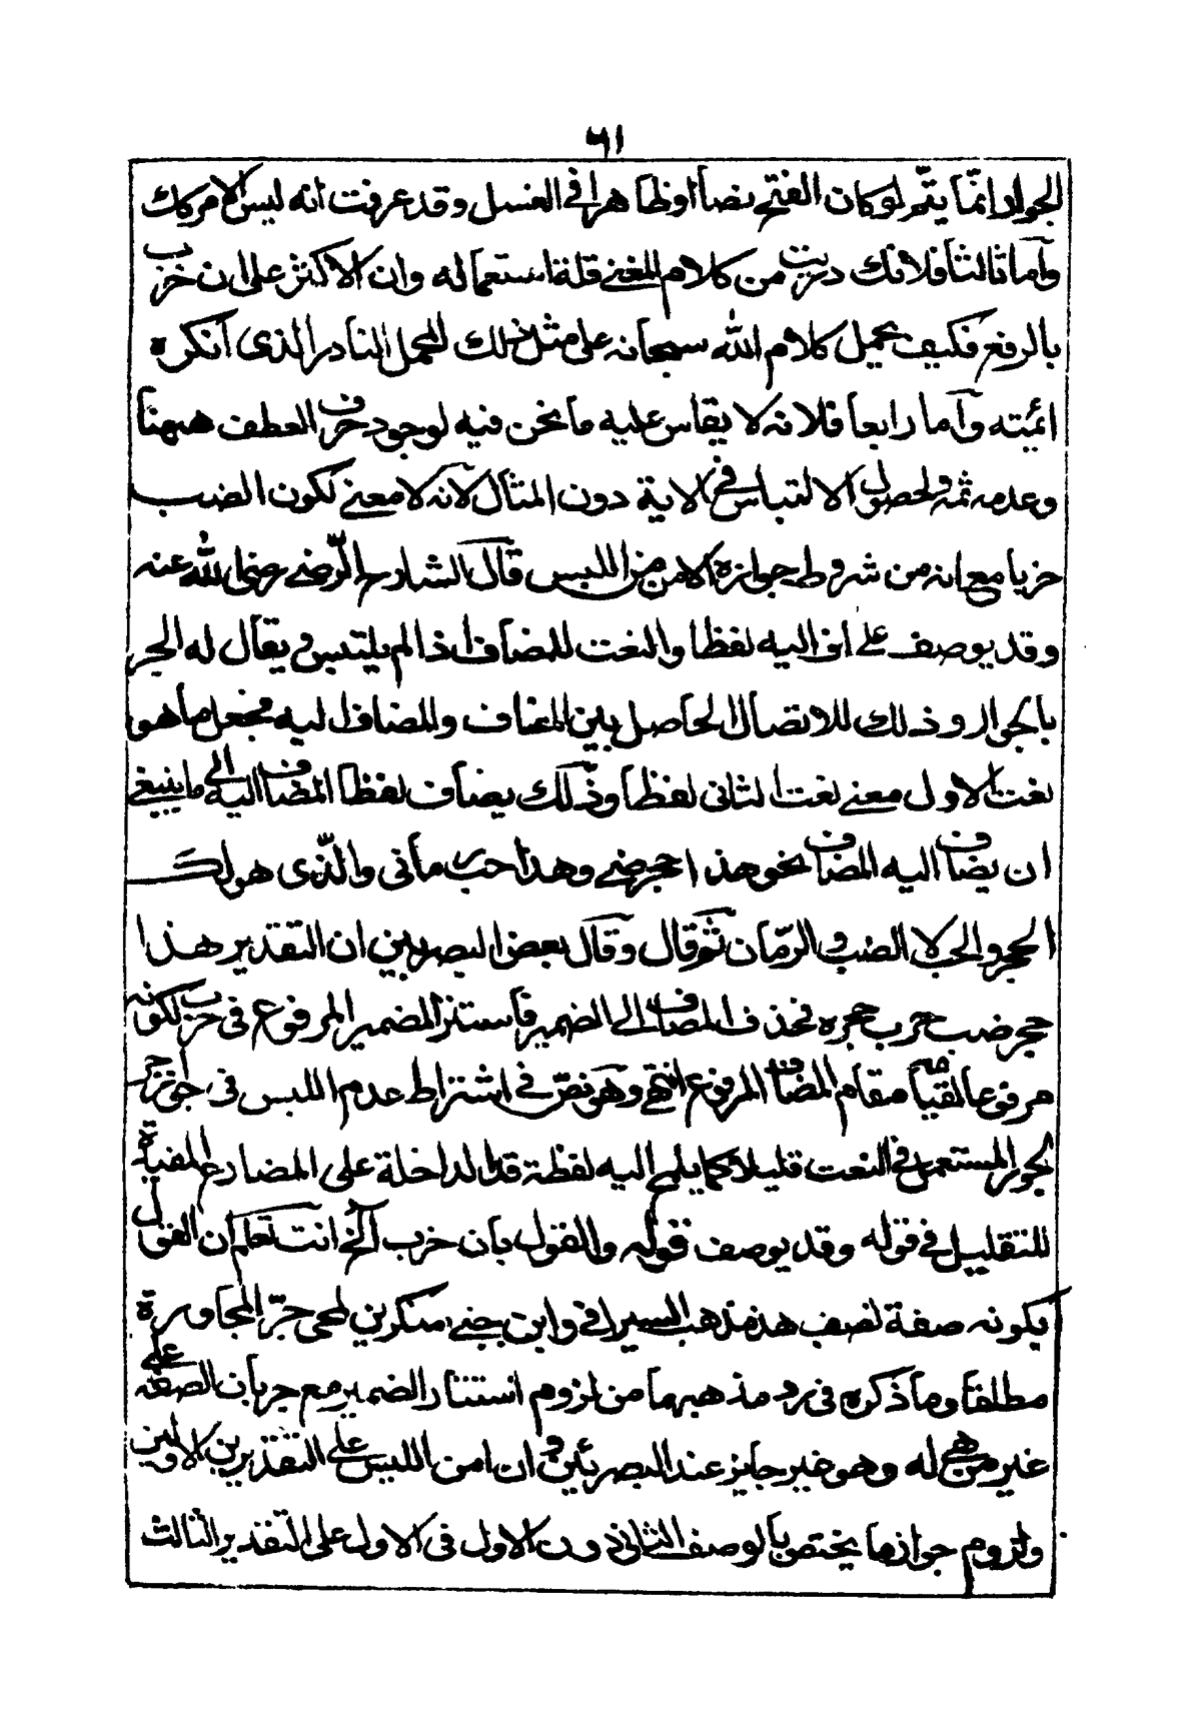 ٦١
الجوار انما يتم لو كان الفتح نصا او ظاهرا في الغسل وقد عرفت انه ليس الامر كك
وآما ثالثا فلانك دريت من كلام المغني قلة استعماله وان الاكثر على ان خرب
بالرفع فكيف يحمل كلام الله سبحانه على مثل ذلك المحمل النادر الذى انكره
ائمته وآما رابعا فلانه لا يقاس عليه ما نحن فيه لوجود حرف العطف ههنا
وعدمه ثمه ولحصول الالتباس في الاية دون المثال لانه لا معنى لكون الضب
خربا مع انه من شروط جوازه الامن من اللبس قال الشارح الرضي رضى الله عنه
وقد يوصف اليه لفظا والنعت للمضاف اذا لم يلتبس ويقال له الجر
بالجوار وذلك للاتصال الحاصل بين المضاف والمضاف اليه فجعل ما هو
نعت الاول معنى نعت الثانى لفظا وذلك يضاف لفظا المضاف اليه الى ما ينبغي
ان يضاف اليه المضاف نحو هذا حجر ضبي وهذا حب رمانى والذى هو لك
الحجر والحب لا الضب والرمان ثم قال وقال بعض البصريين ان التقدير هذا
حجر ضب خرب حجره فحذف المضاف الى الضمير فاستتر الضمير المرفوع فى خرب لكونه
مرفوعا لقيامه مقام المضاف المرفوع انتهى وهو نص في اشتراط عدم اللبس فى جواز جر
الجوار المستعمل في النعت قليلا كما يلمح اليه لفظة قد الداخلة على المضارع المفيدة
للتقليل في قوله وقد يوصف قوله والقول بان خرب الخ انت تعلم ان القول
بكونه صفة لضب هذا مذهب السيرافي وابن جني منكرين لمجى جر المجاورة
مطلقا وما ذكره فى رد مذهبهما من لزوم استتار الضمير مع جريان الصفة على
غير من هي له وهو غير جايز عند البصريين وان امن اللبس على التقديرين الاولين
ولزوم جواز ما يختص بالوصف الثانى دون الاول فى الاول على التقدير الثالث